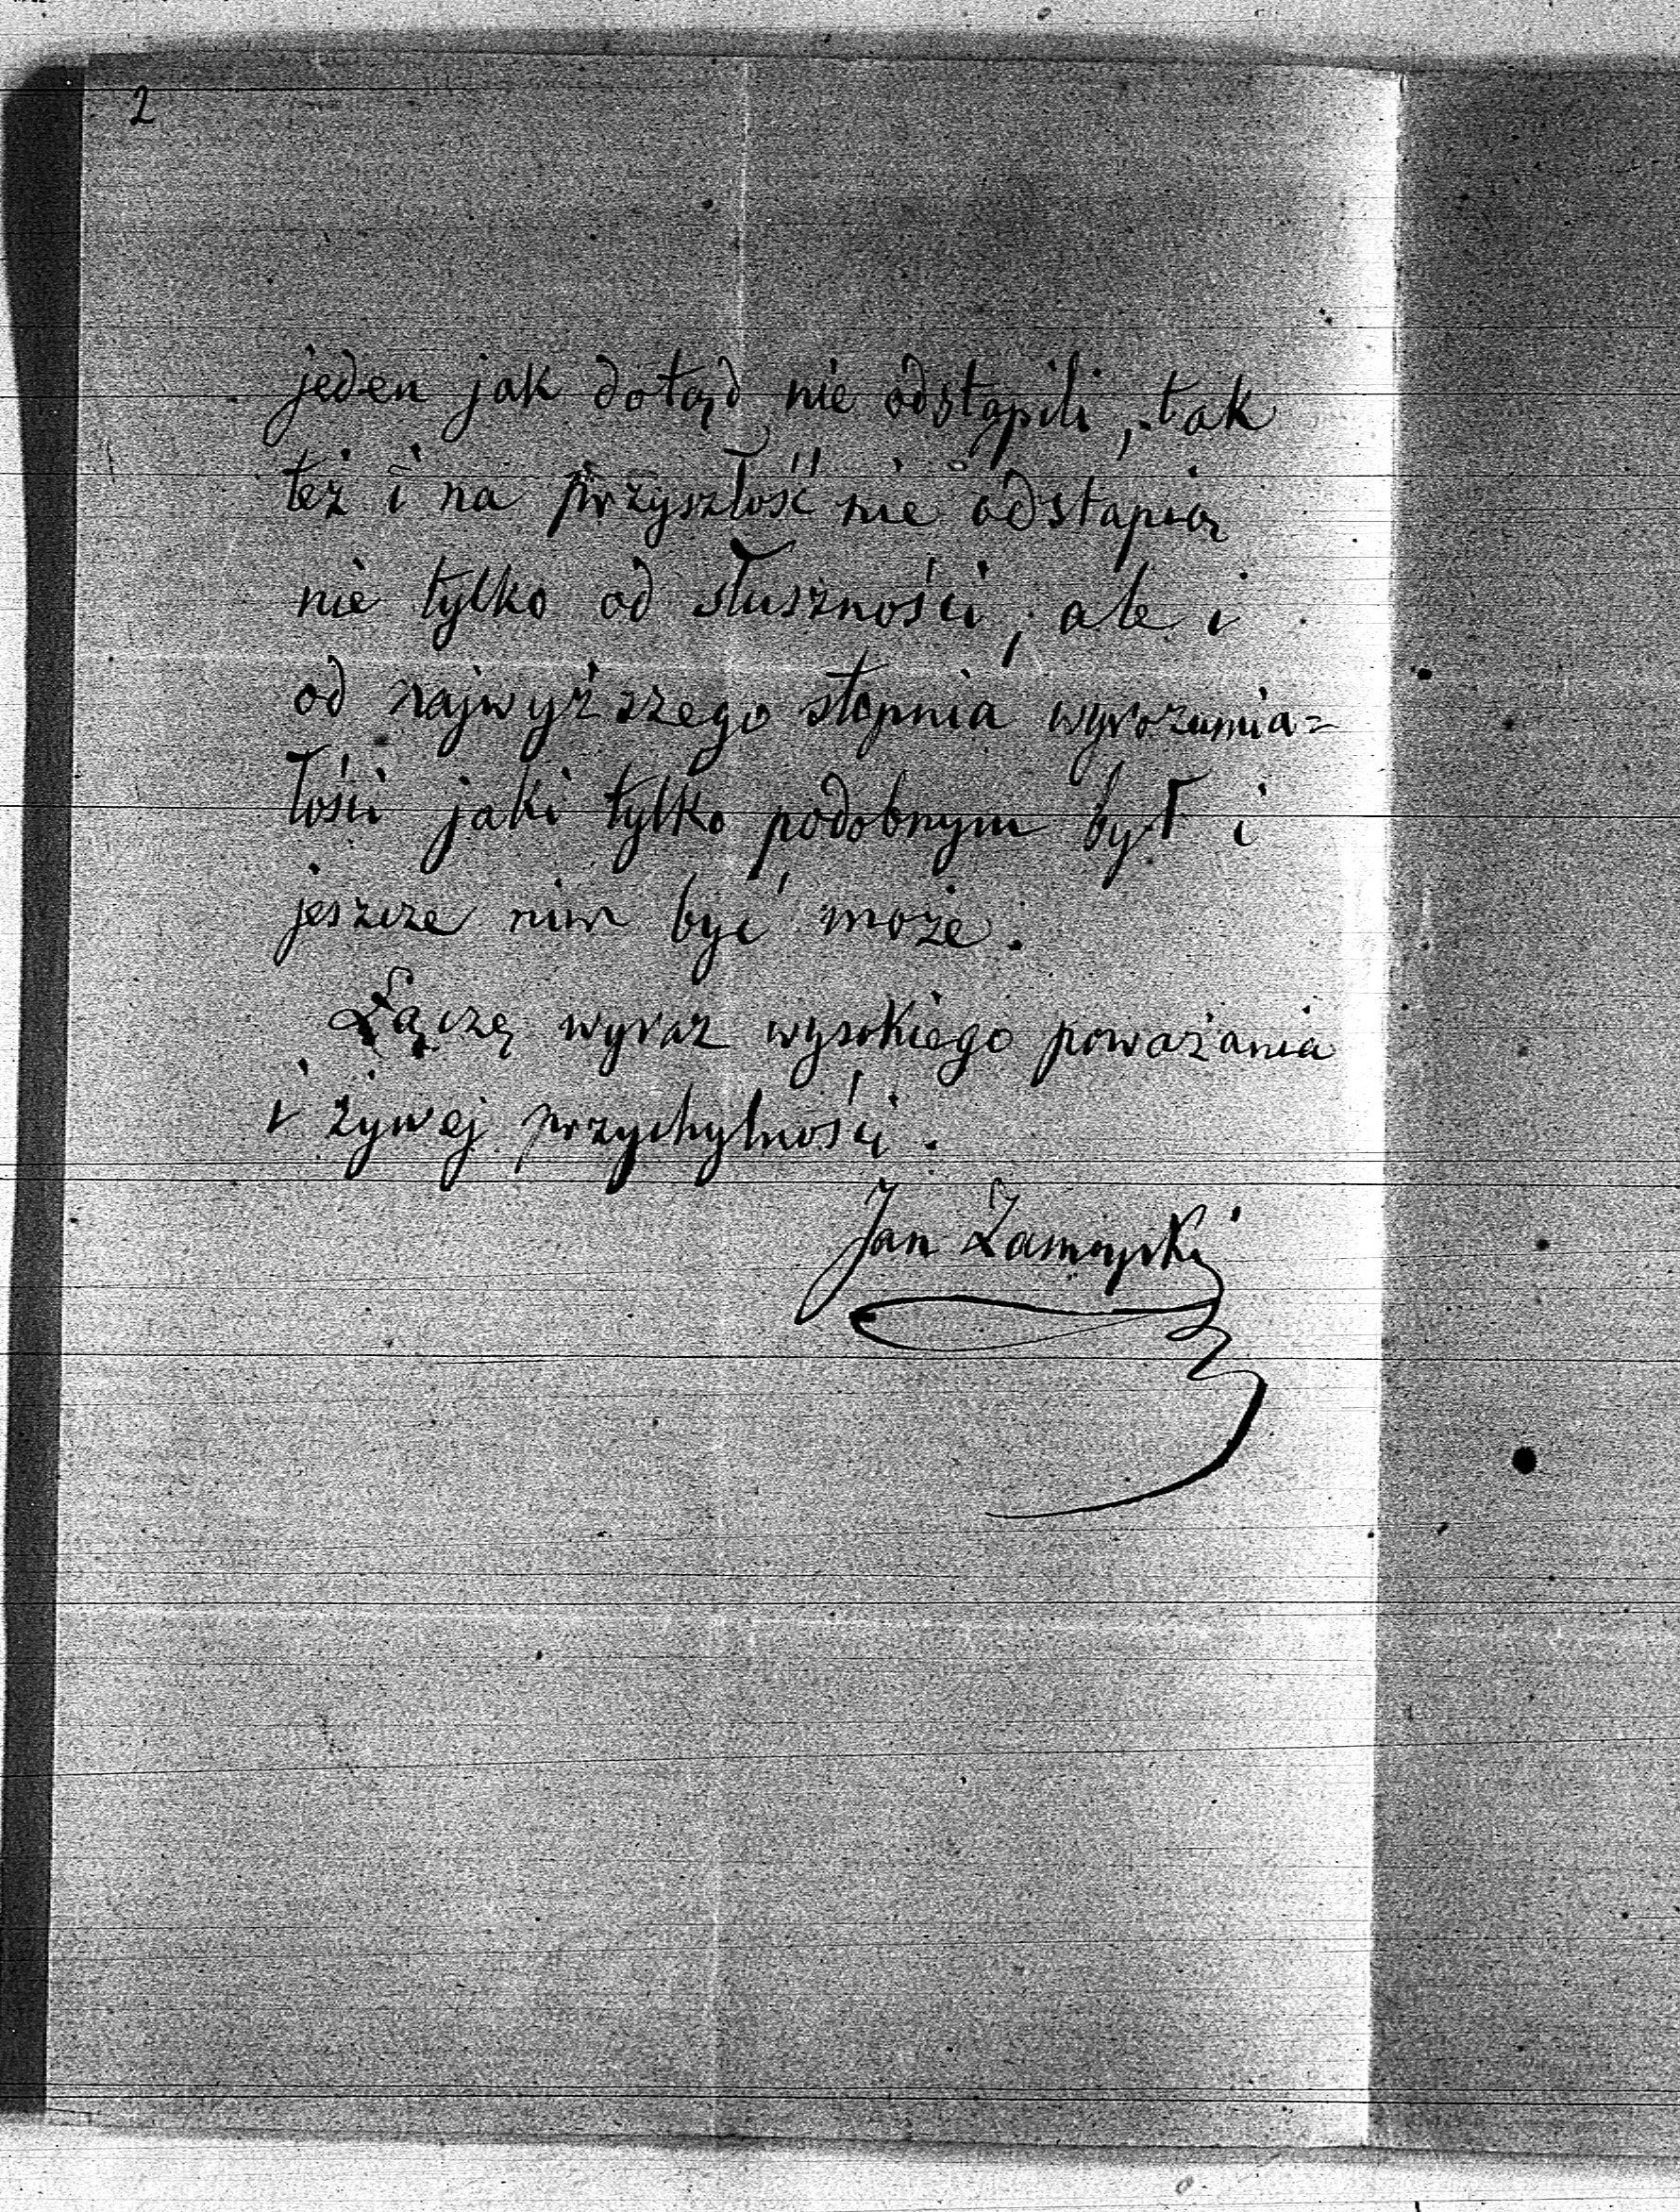 2
jeden jak dotąd nie odstąpili, tak
też i na przyszłość nie odstąpią
nie tylko od słuszności, ale i
od najwyższego stopnia wyrozumia=
łości jaki tylko podobnym był i
jeszcze nim być może.
Łączę wyraz wysokiego poważania
i żywej przychylności.
Jan Zamoyski